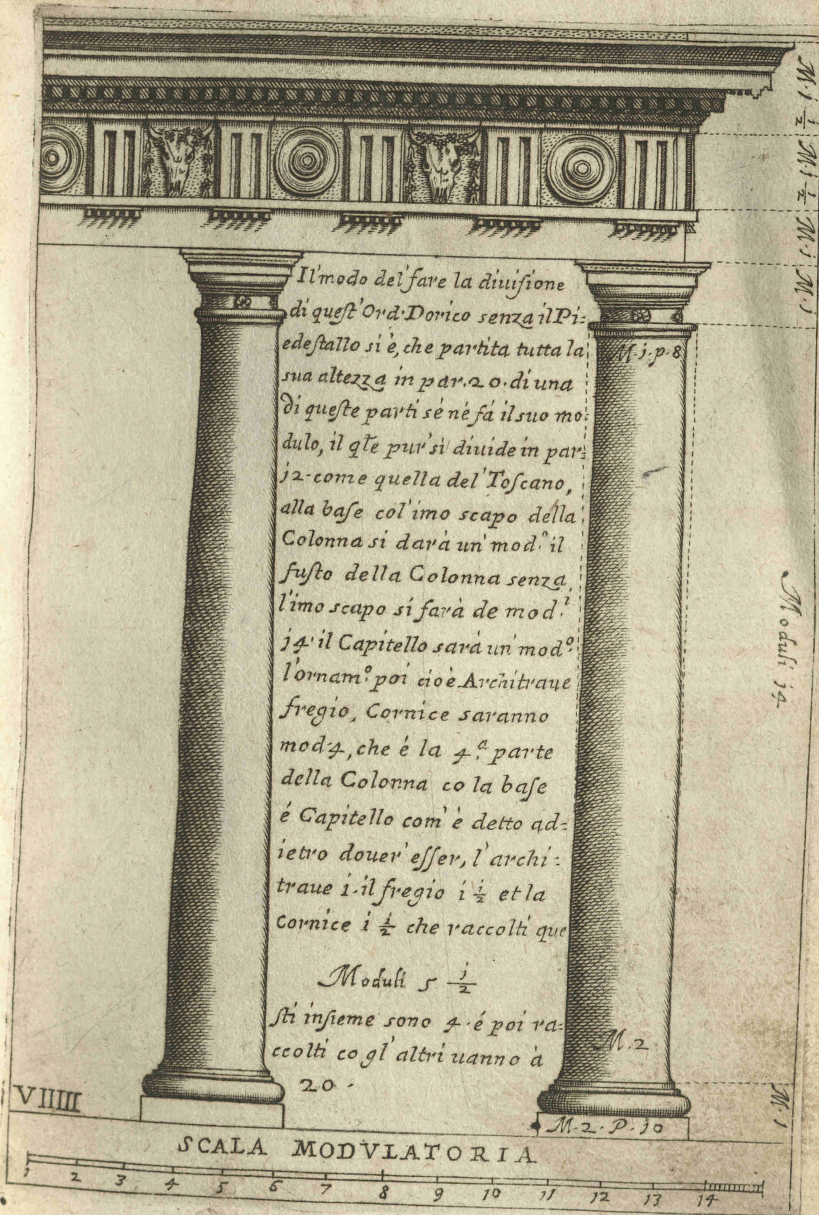 M. i 1/2
M i 1/2
M. i
M. i
Il'modo del'fare la diuiſione
di queſt'Ord.Dorico senza il Pi=
edeſtallo si è, che partita tutta la
sua altezza in par.20.di una
di queſte parti sé né fá il suo mo=
dulo, il qle pur'si diuide in par=
j2-come quella del'Toſcano,
alla baſe col'imo scapo della
Colonna si darà un'mod.º il
fuſto della Colonna senza
l'imo scapo si farà de mod.i
j4.il Capitello sarà un'mod.º
l'ornam.º poi cioè Architraue
fregio, Cornice saranno
mod.4, che é la 4.ª parte
della Colonna co la baſe
é Capitello com'è detto ad=
ietro douer'eſſer, l'archi=
traue i.il fregio i 1/2 et la
Cornice i 1/2 che raccolti que
Moduli 5 1/2
ſti inſieme sono 4.é poi ra=
ccolti co gl'altri uanno à
20.
M.j.p.8
Moduli j4
M.2
M.i
M.2.P.j0
VIIIII
SCALA MODVLATORIA
1 2 3 4 5 6 7 8 9 10 11 12 13 14